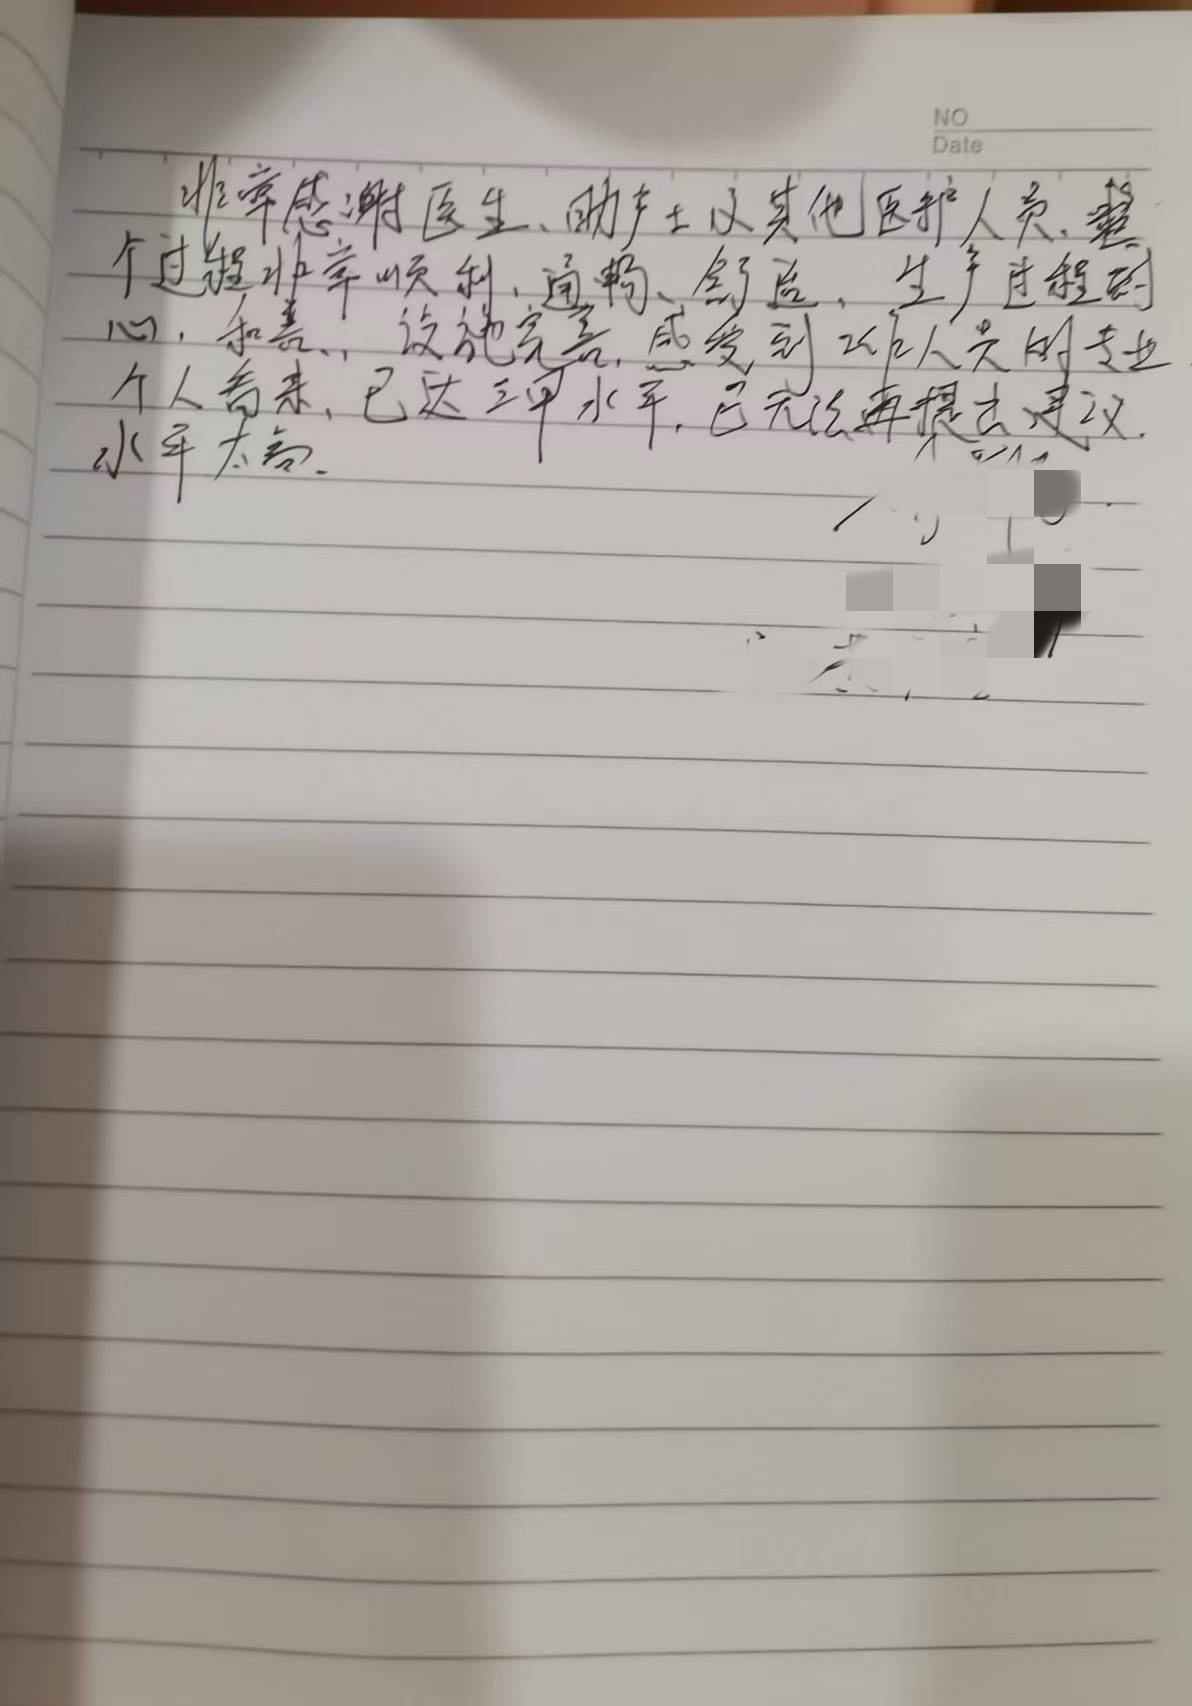 NO
Date
非常感谢医生、助产士及其他医护人员.整
个过程非常顺利、通畅、舒适、生产过程
心.和善、设施完善.感受到工作人员的专业
个人看来,已达三甲水平,已无法再提出建议.
水平太高.